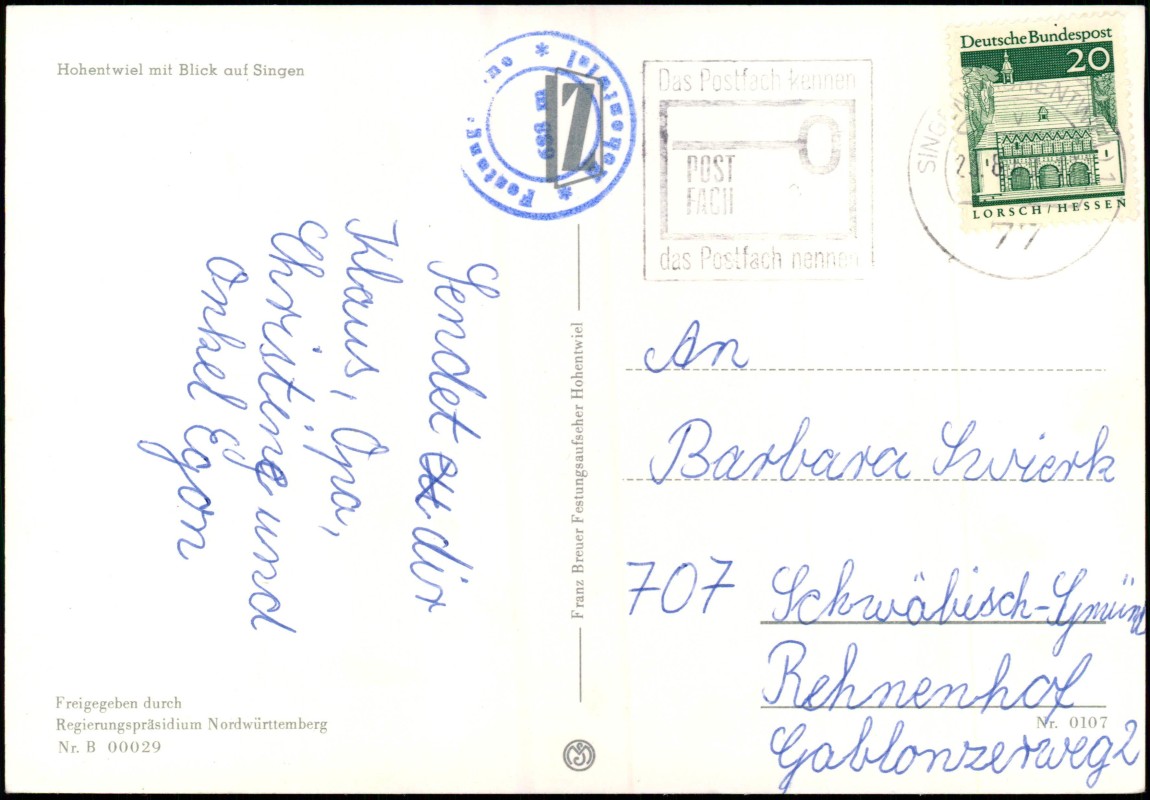 Hohentwiel mit Blick auf Singen
Sendet dir
Klaus, Opa,
Christine und
Onkel Egon
Freigegeben durch
Regierungspräsidium Nordwürttemberg
Nr. B 00029
Franz Breuer Festungsaufseher Hohentwiel
Festung
Hohentwiel
689 m
Z
Das Postfach kennen
POST
FACH
das Postfach nennen
SINGEN (HOHENTWIEL) 1
77
Deutsche Bundespost
20
LORSCH/HESSEN
An
Barbara Zwierk
707 Schwäbisch-Gmünd
Rehnenhof
Nr. 0107
Gablonzerweg 2